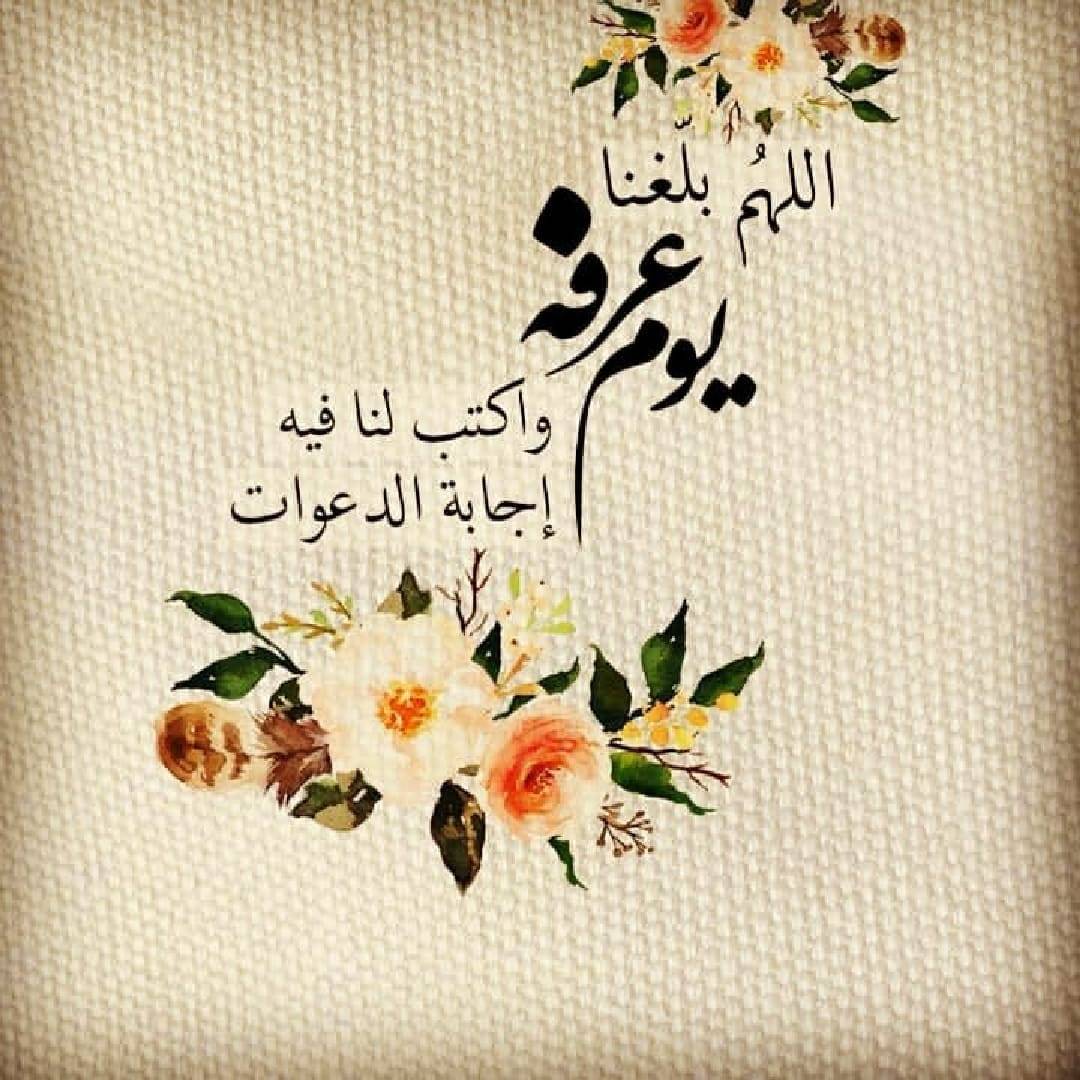 اللهُم بلّغنا
يوم عرفه
واكتب لنا فيه
إجابة الدعوات